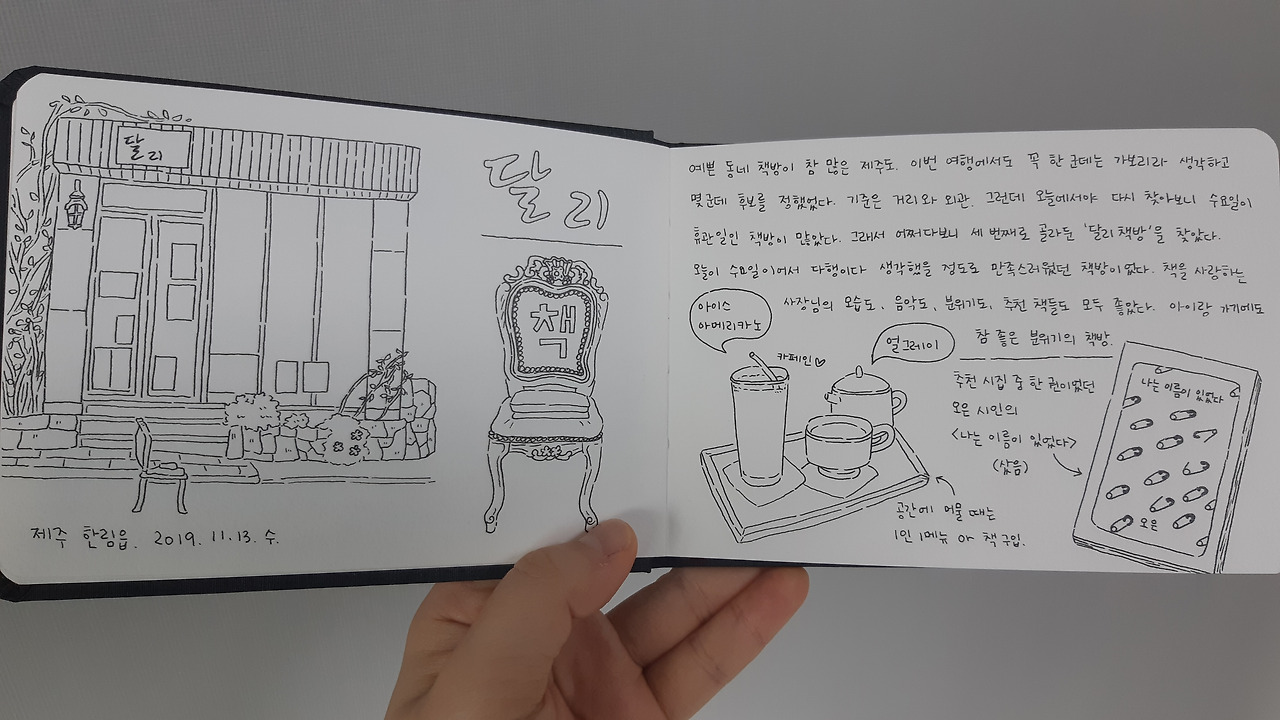 달리
달리
책
제주 한림읍. 2019. 11. 13. 수.
예쁜 동네 책방이 참 많은 제주도. 이번 여행에서도 꼭 한 군데는 가보리라 생각하고
몇군데 후보를 정했었다. 기준은 거리와 외관. 그런데 오늘에서야 다시 찾아보니 수요일이
휴관일인 책방이 많았다. 그래서 어쩌다보니 세 번째로 골라둔 '달리 책방'을 찾았다.
오늘이 수요일이어서 다행이다 생각했을 정도로 만족스러웠던 책방이었다. 책을 사랑하는
사장님의 모습도, 음악도, 분위기도, 추천 책들도 모두 좋았다. 아이랑 가기에도
참 좋은 분위기의 책방.
아이스
아메리카노
카페인♡
얼그레이
추천 시집 중 한 권이었던
오은 시인의
<나는 이름이 있었다>
(샀음)
나는 이름이 있었다
오은
공간에 머물 때는
1인 1메뉴 or 책 구입.